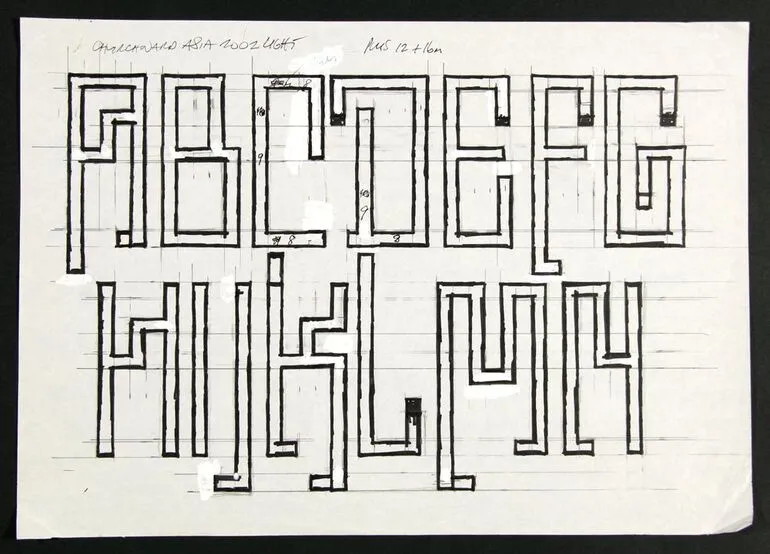 CHURCHWARD ASIA 2002 LIGHT PENS 12 + 16m
ABCDEFG
HIJKLMN